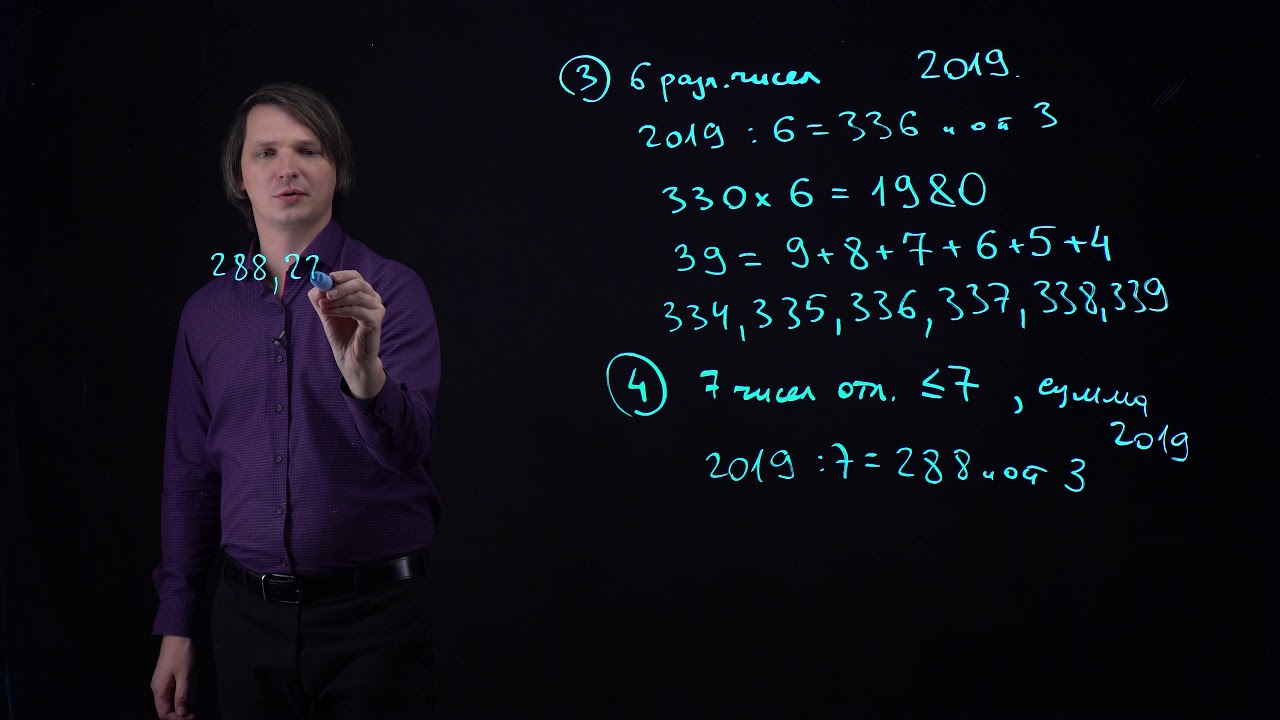 ③ 6 разл. чисел 2019.
2019 : 6 = 336 и ост 3
330 × 6 = 1980
39 = 9+8+7+6+5+4
334, 335, 336, 337, 338, 339
④ 7 чисел отл. ≤7, сумма
2019
2019 : 7 = 288 и ост 3
288, 22